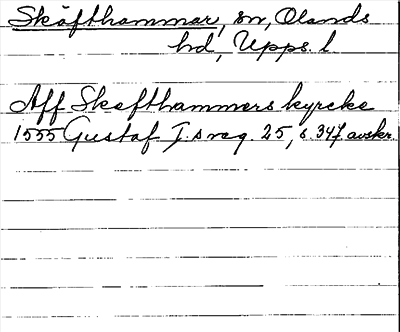 Skäfthammar, sn, Olands
hd, Upps. l
Aff Skefthammers kyrcke
1555 Gustaf I:s reg. 25, s. 347 avskr.